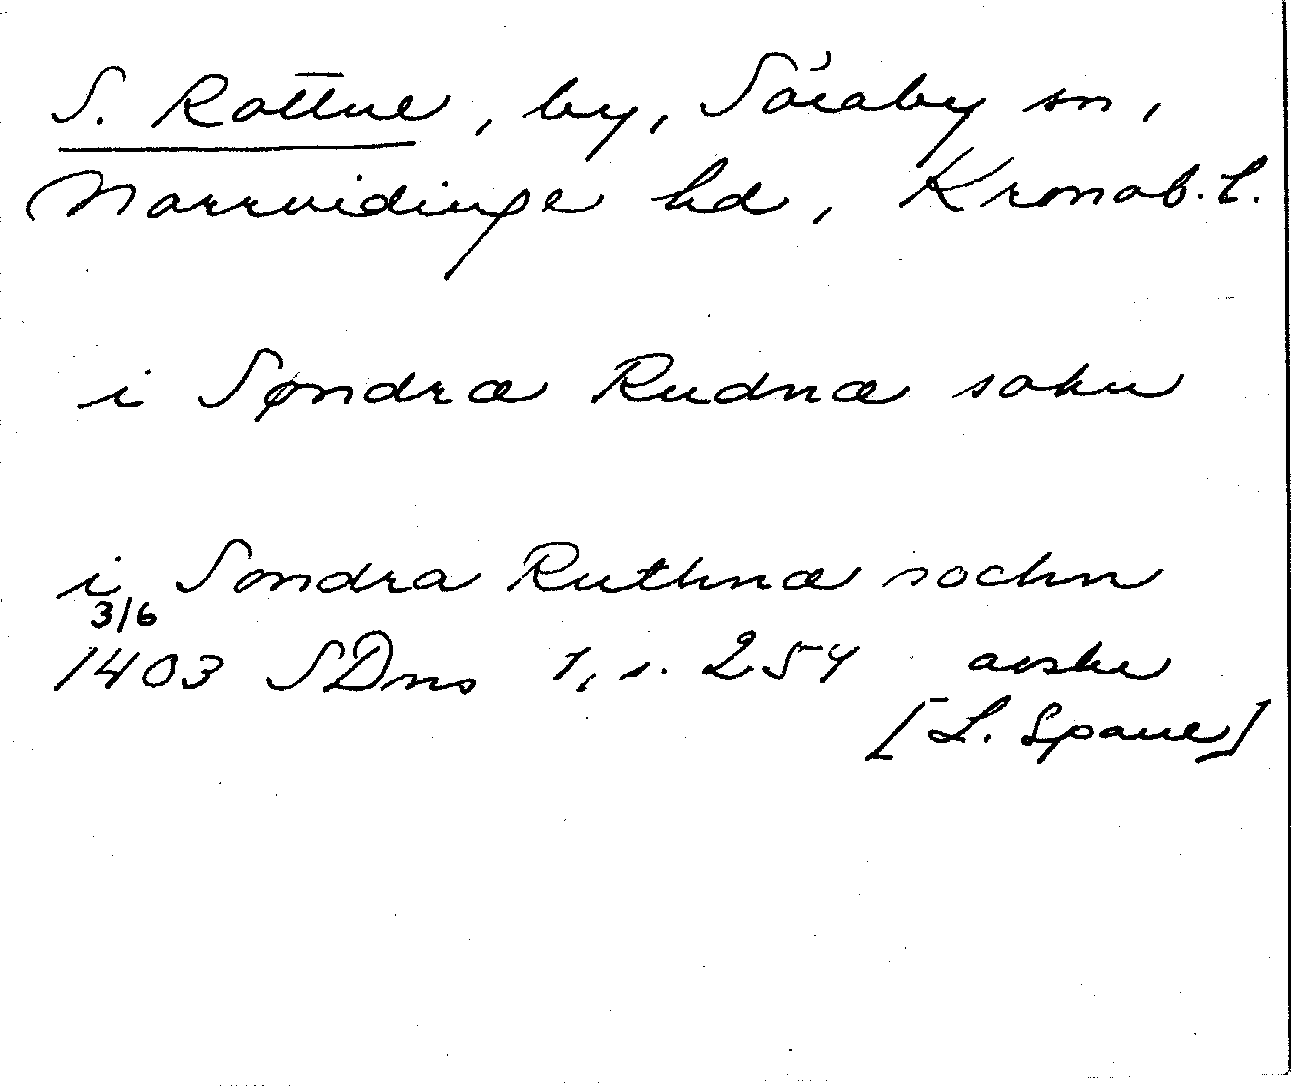 S. Rottne, by, Söraby sn,
Norrvidinge hd, Kronob. l.
i Søndræ Rudnæ sokn
i Sondra Ruthnæ sochn
3/6
1403 SDns 1, s. 254 avskr
[L. Spane]